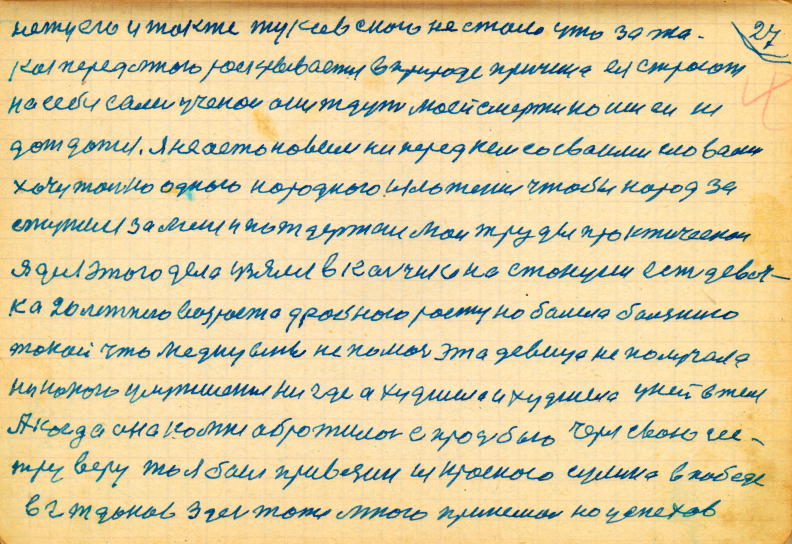 27
нету его и также тукавского нестало что за та-
кая перед этого раскрывается в природе причина ея строют
на себя сами ученои они ждут моей смерти но им ея ни
дождатся. Я не астоновлюся ни перед кем со сваими словами
хочу только одного народного изложения чтобы народ за
ступился за меня и поддержал мои труды практическои
я для этого дела взялся в на станции есть девоч-
ка 20 летнего возроста дробного росту но балела балезнию
такой что медицины не помоч эта девица не получала
ни какого улутшения ни где а худшела и худшела у ней в теле
А когда она комне обротилась с прозбою через свою сес-
тру веру то я был привезли из красного сулина в победе
в г жданов здесь тоже много принимал но успехов